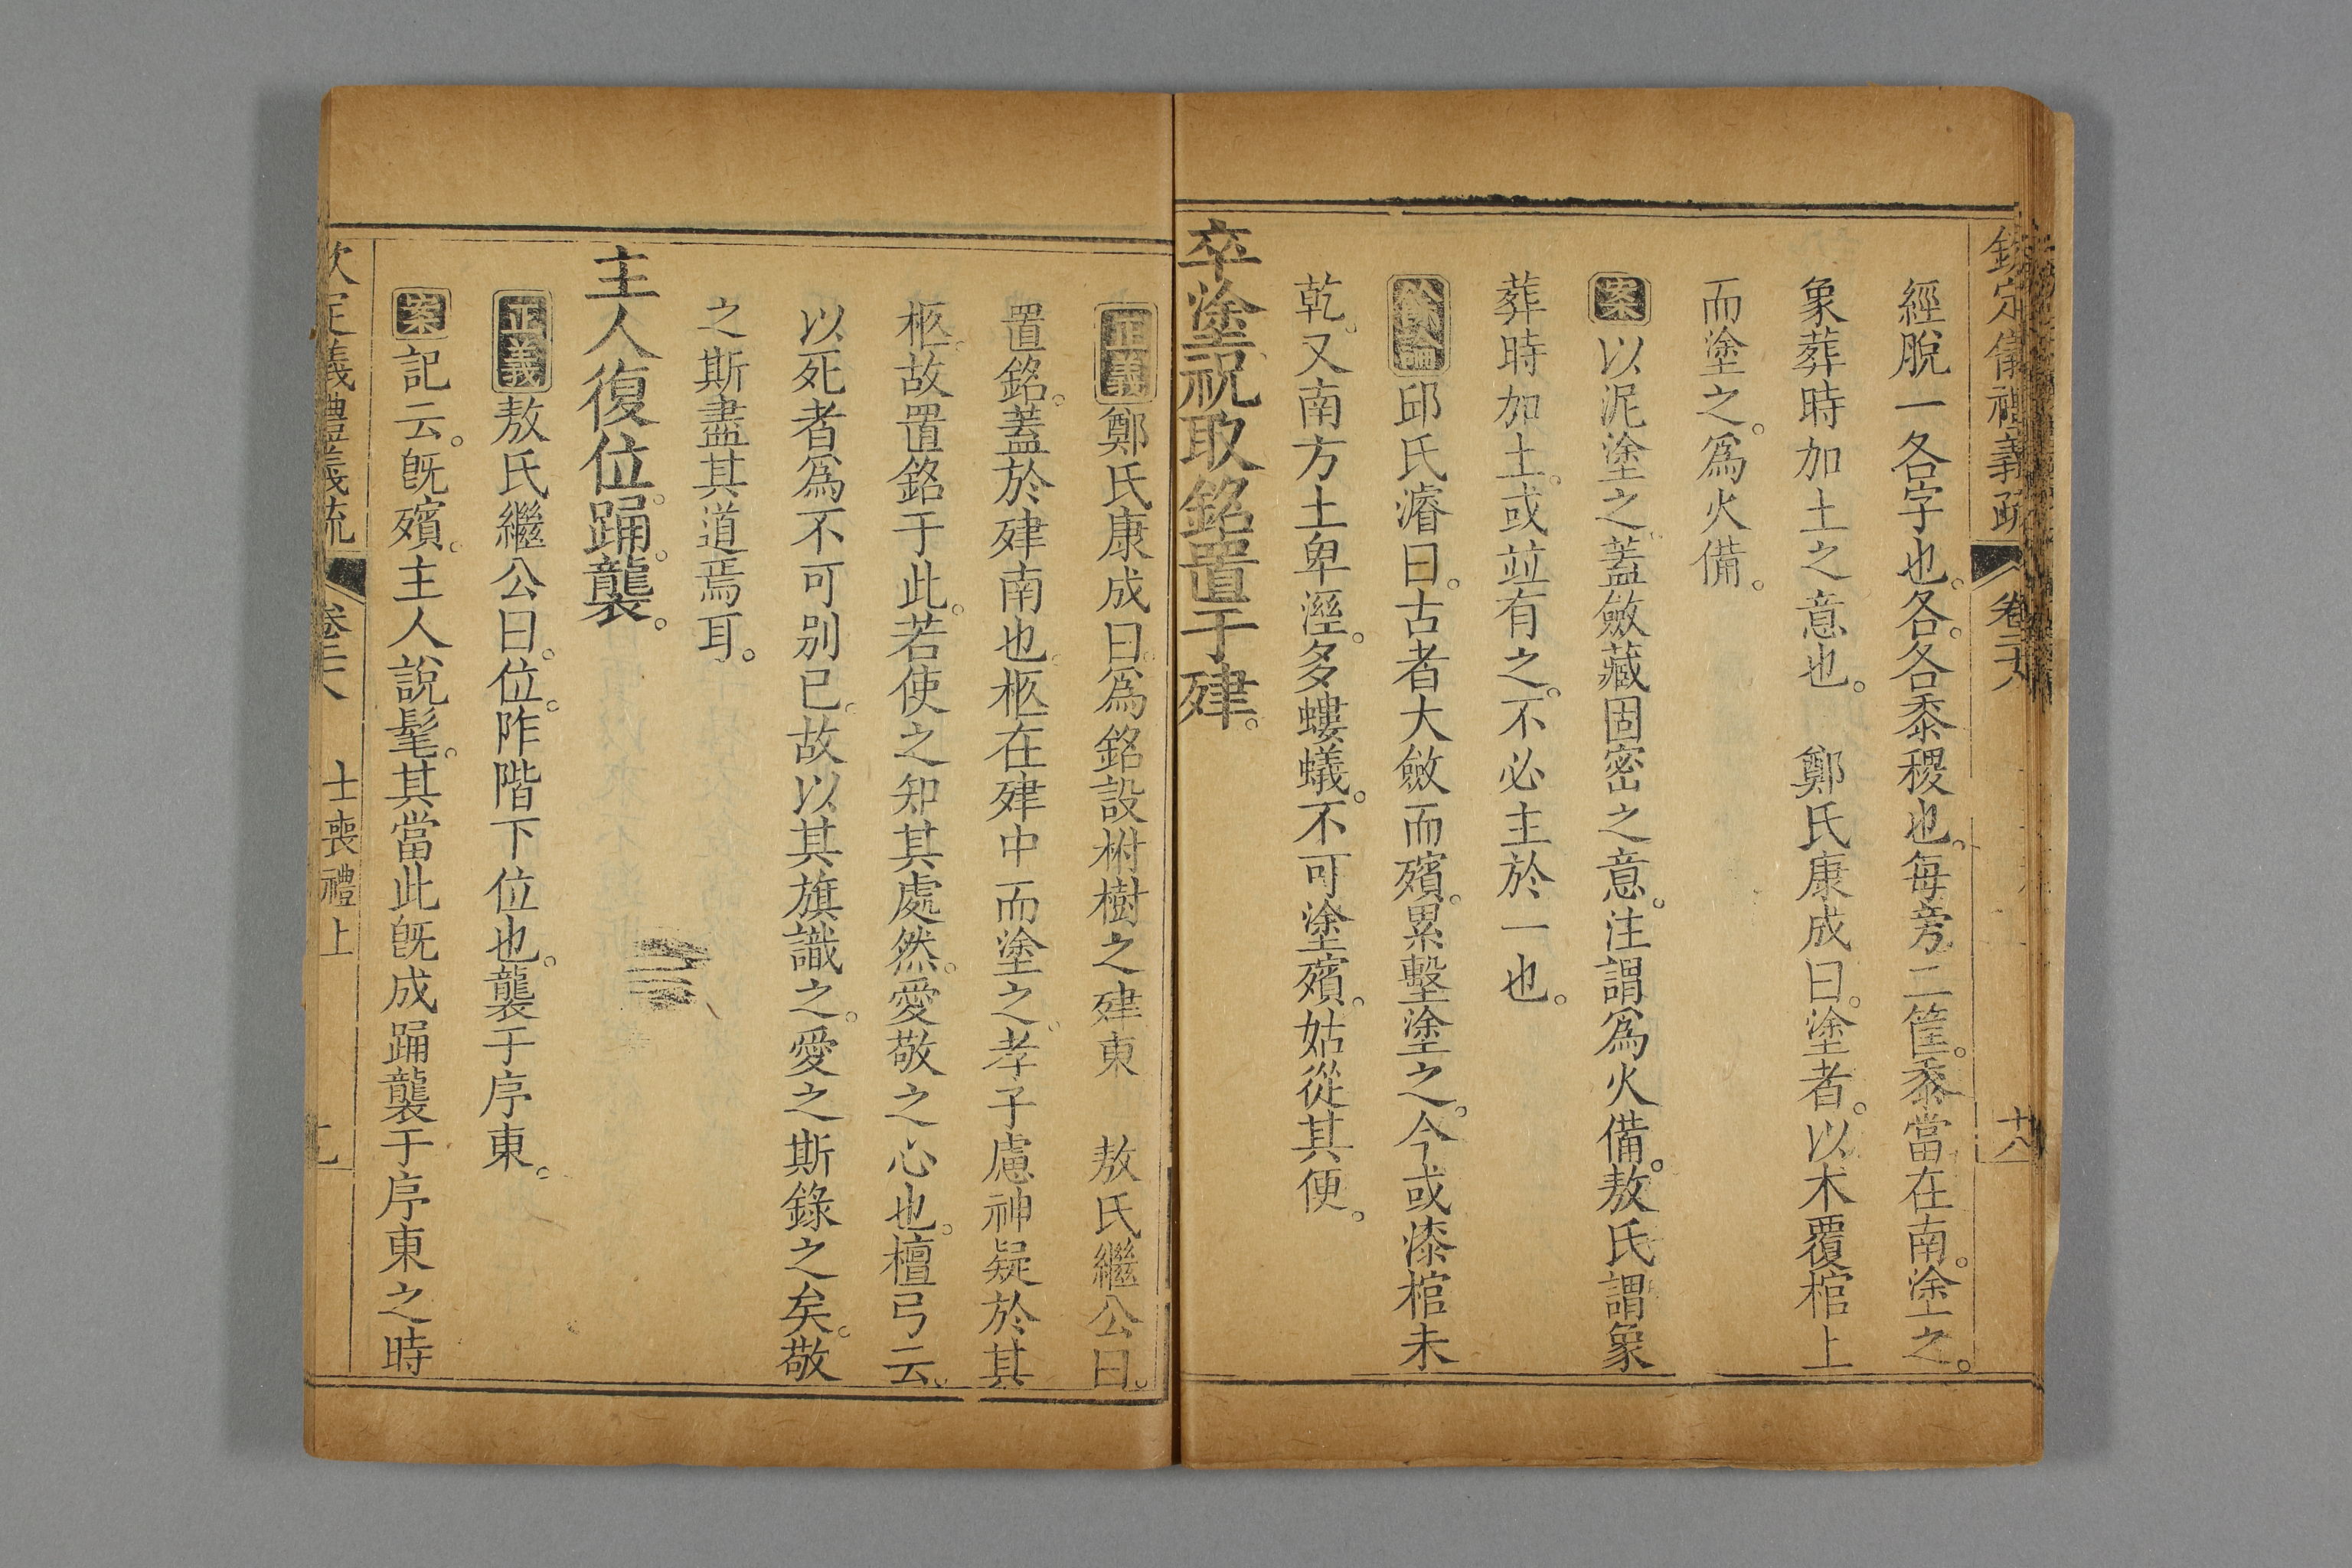 欽定儀禮義疏 卷二十八 十八
經脫一各字也。各。各黍稷也。每旁二筐。黍當在南。塗之。
象葬時加土之意也。 鄭氏康成曰。塗者。以木覆棺上
而塗之。爲火備。
案以泥塗之。蓋斂藏固密之意。注謂爲火備。敖氏謂象
葬時加土。或竝有之。不必主於一也。
餘論邱氏濬曰。古者大斂而殯。累墼塗之。今或漆棺未
乾。又南方土卑溼。多螻蟻。不可塗殯。姑從其便。
卒塗祝取銘置于肂。
正義鄭氏康成曰。爲銘設柎樹之肂東 敖氏繼公曰。
置銘。蓋於肂南也。柩在肂中而塗之。孝子慮神疑於其
柩。故置銘于此。若使之知其處然。愛敬之心也。檀弓云。
以死者爲不可别已。故以其旗識之。愛之斯錄之矣。敬
之斯盡其道焉耳。
主人復位。踊。襲。
正義敖氏繼公曰。位。阼階下位也。襲于序東。
案記云。旣殯。主人說髦。其當此旣成踊襲于序東之時
欽定儀禮義疏 卷二十八 士喪禮上